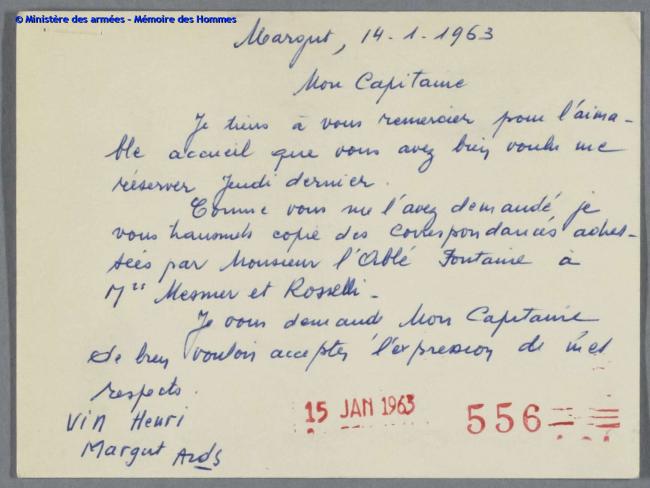 © Ministère des armées - Mémoire des Hommes
Margut, 14-1-1963
Mon Capitaine
Je tiens à vous remercier pour l'aima-
ble accueil que vous avez bien voulu me
réserver Jeudi dernier.
Comme vous me l'avez demandé je
vous transmets copie des correspondances adres-
sées par Monsieur l'Abbé Fontaine à
Mrs Mesmer et Rosselli.
Je vous demande Mon Capitaine
de bien vouloir accepter l'expression de mes
respects.
Vin Henri
Margut Ards
15 JAN 1963
556